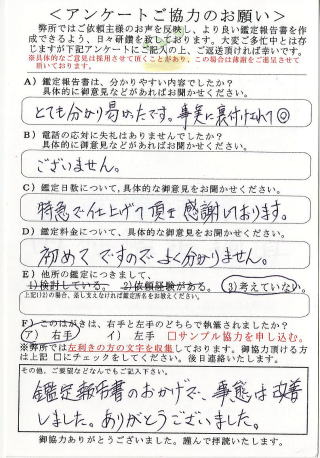 ＜アンケートご協力のお願い＞
弊所ではご依頼主様のお声を反映し、より良い鑑定報告書を作
成できるよう、日々研鑽を致しております。大変ご多忙中とは存
じますが下記アンケートにご記入の上、ご返送頂ければ幸いです。
※具体的なご意見は採用させて頂くことがあり、この場合は薄謝をご進呈させて
頂いております。
A）鑑定報告書は、分かりやすい内容でしたか？
具体的に御意見などあればお聞かせください。
とても分かり易かったです。事実に裏付けされて◎
B）電話の応対に失礼はありませんでしたか？
具体的に御意見などあればお聞かせください。
ございません。
C）鑑定日数について、具体的な御意見をお聞かせください。
特急で仕上げて頂き感謝しております。
D）鑑定料金について、具体的な御意見をお聞かせください。
初めてですのでよく分かりません。
E）他所の鑑定につきまして、
1）検討している。 2）依頼経験がある。 （3）考えていない。
上記(1)2)の場合、差し支えなければ鑑定所名をお教えください。
F）このはがきは、右手と左手のどちらで執筆されましたか？
ア） 右手 イ） 左手 □サンプル協力を申し込む。
※弊所では左利きの方の文字を収集しております。御協力頂ける方
は上記 □にチェックをしてください。後日連絡いたします。
その他、ご要望などなんでもご記入下さい。
鑑定報告書のおかげで、事態は改善
しました。ありがとうございました。
御協力ありがとうございました。謹んで拝読いたします。